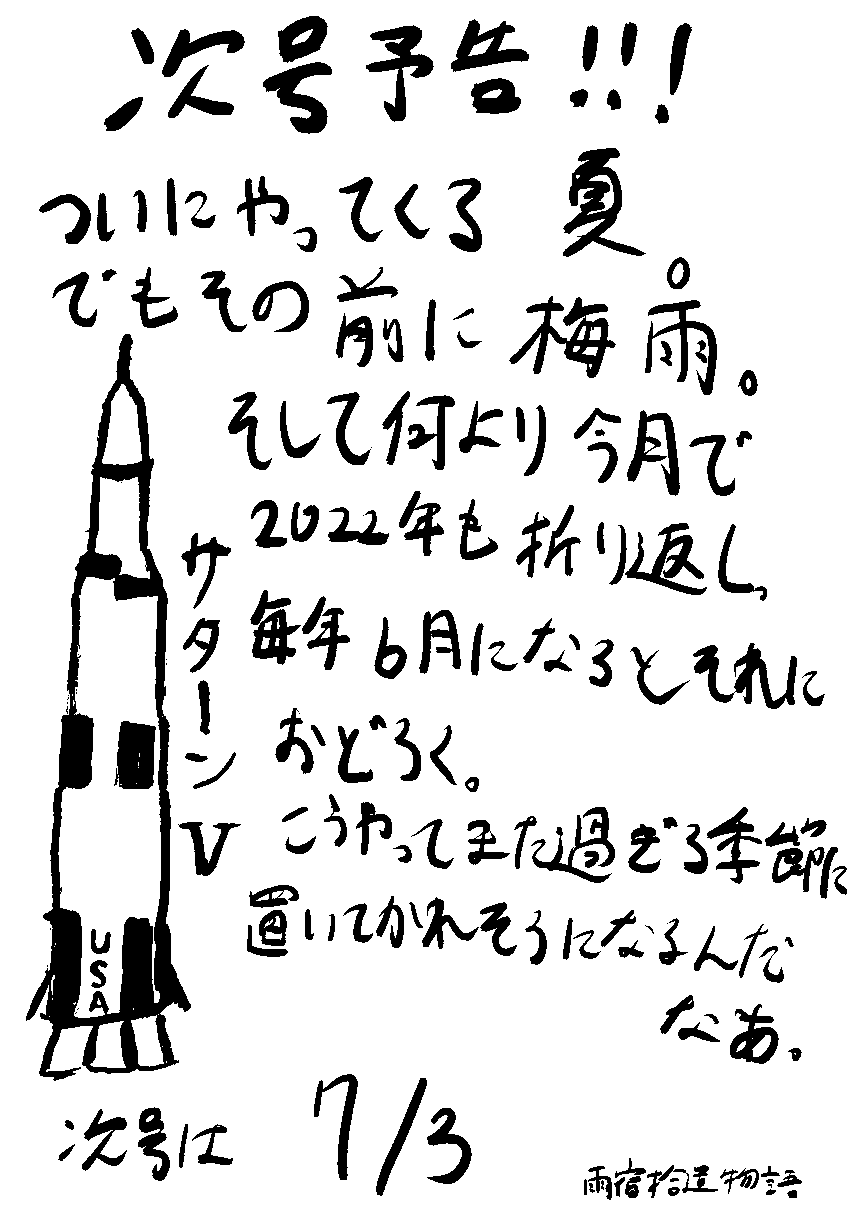 次号予告!!!
ついにやってくる 夏。
でもその前に 梅雨。
そして何より 今月で
2022年も 折り返し、
毎年 6月になるとそれに
おどろく。
こうやってまた過ぎる季節に
置いてかれそうになるんだ
なあ。
サターンV
USA
次号は 7/3
雨宿拾遺物語